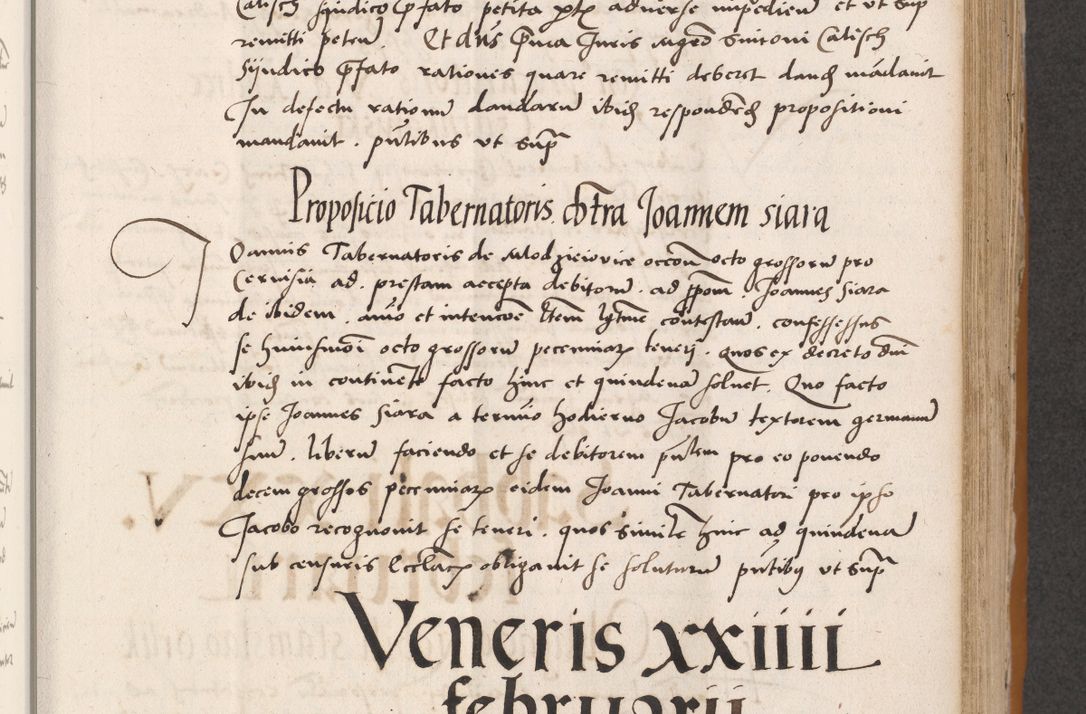 Calisch syndico p̄fato petita ptē adverse impedien̄ et ut sup̄
remitti peten̄. Et dn̄s Juris mgrō Simoni Calisch
Syndico p̄fato rationes quare remitti deberet dandas mādavit
In defectu rationū dandarū ibidē respondend̄ propositioni
mandavit. pn̄tibus ut sup̄
Propositio Tabernatoris cōtra Joannem siara
Joannis Tabernatoris de Modziejovice occōn̄ octo grossorū pro
Cervisia ad prestam accepta debitorū. ad ppom̄. Joannes Siara
de ibidem. aīo et intencōe litem lgtīme contestan̄. confessus
se huiusmōi octo grossorū pecuniarū teneri. Quos ex decreto dn̄i
ibidē in continēti facto hinc et quindenā solvet. Quo facto
ipse Joannes Siara a termīo hodierno Jacobū textorem germanū
suū. liberū faciendo et se debitorem pn̄tem pro eo ponendo
decem grossos pecuniarū eidem Joanni Tabernatori pro ipso
Jacobo recognovit se teneri. quos similr̄ hinc ad quindenā
sub censuris Ecclarū obligavit se soluturū pn̄tibus ut sup̄
Veneris xxiiii
februarii